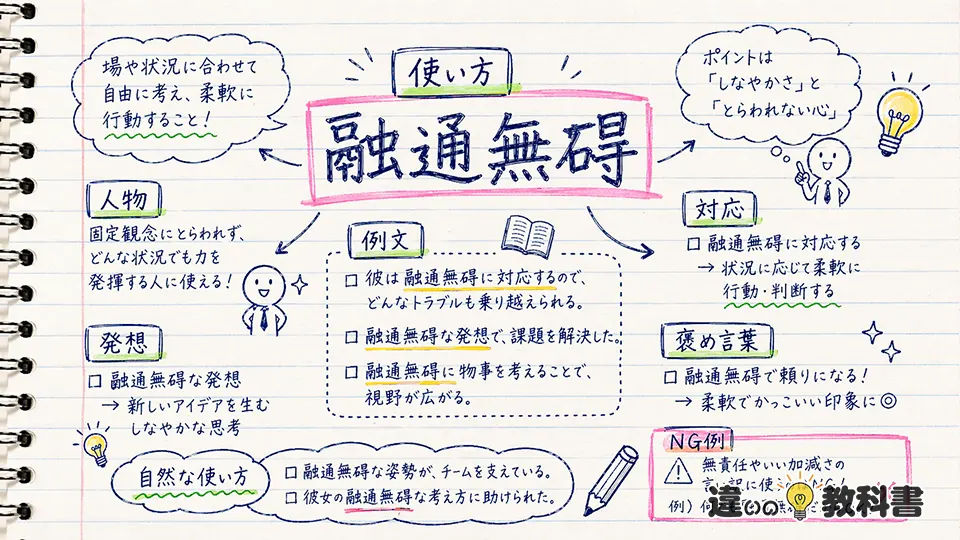 使い方
融通無碍
場や状況に合わせて
自由に考え、柔軟に
行動すること！
ポイントは
「しなやかさ」と
「とらわれない心」
人物
固定観念にとらわれず、
どんな状況でも力を
発揮する人に使える！
例文
□ 彼は融通無碍に対応するので、
どんなトラブルも乗り越えられる。
□ 融通無碍な発想で、課題を解決した。
□ 融通無碍に物事を考えることで、
視野が広がる。
対応
□ 融通無碍に対応する
→ 状況に応じて柔軟に
行動・判断する
発想
□ 融通無碍な発想
→ 新しいアイデアを生む
しなやかな思考
褒め言葉
□ 融通無碍で頼りになる！
→ 柔軟でかっこいい印象に◎
自然な使い方
□ 融通無碍な姿勢が、チームを支えている。
□ 彼女の融通無碍な考え方に助けられた。
NG例
無責任やいい加減さの
例）
違いの教科書